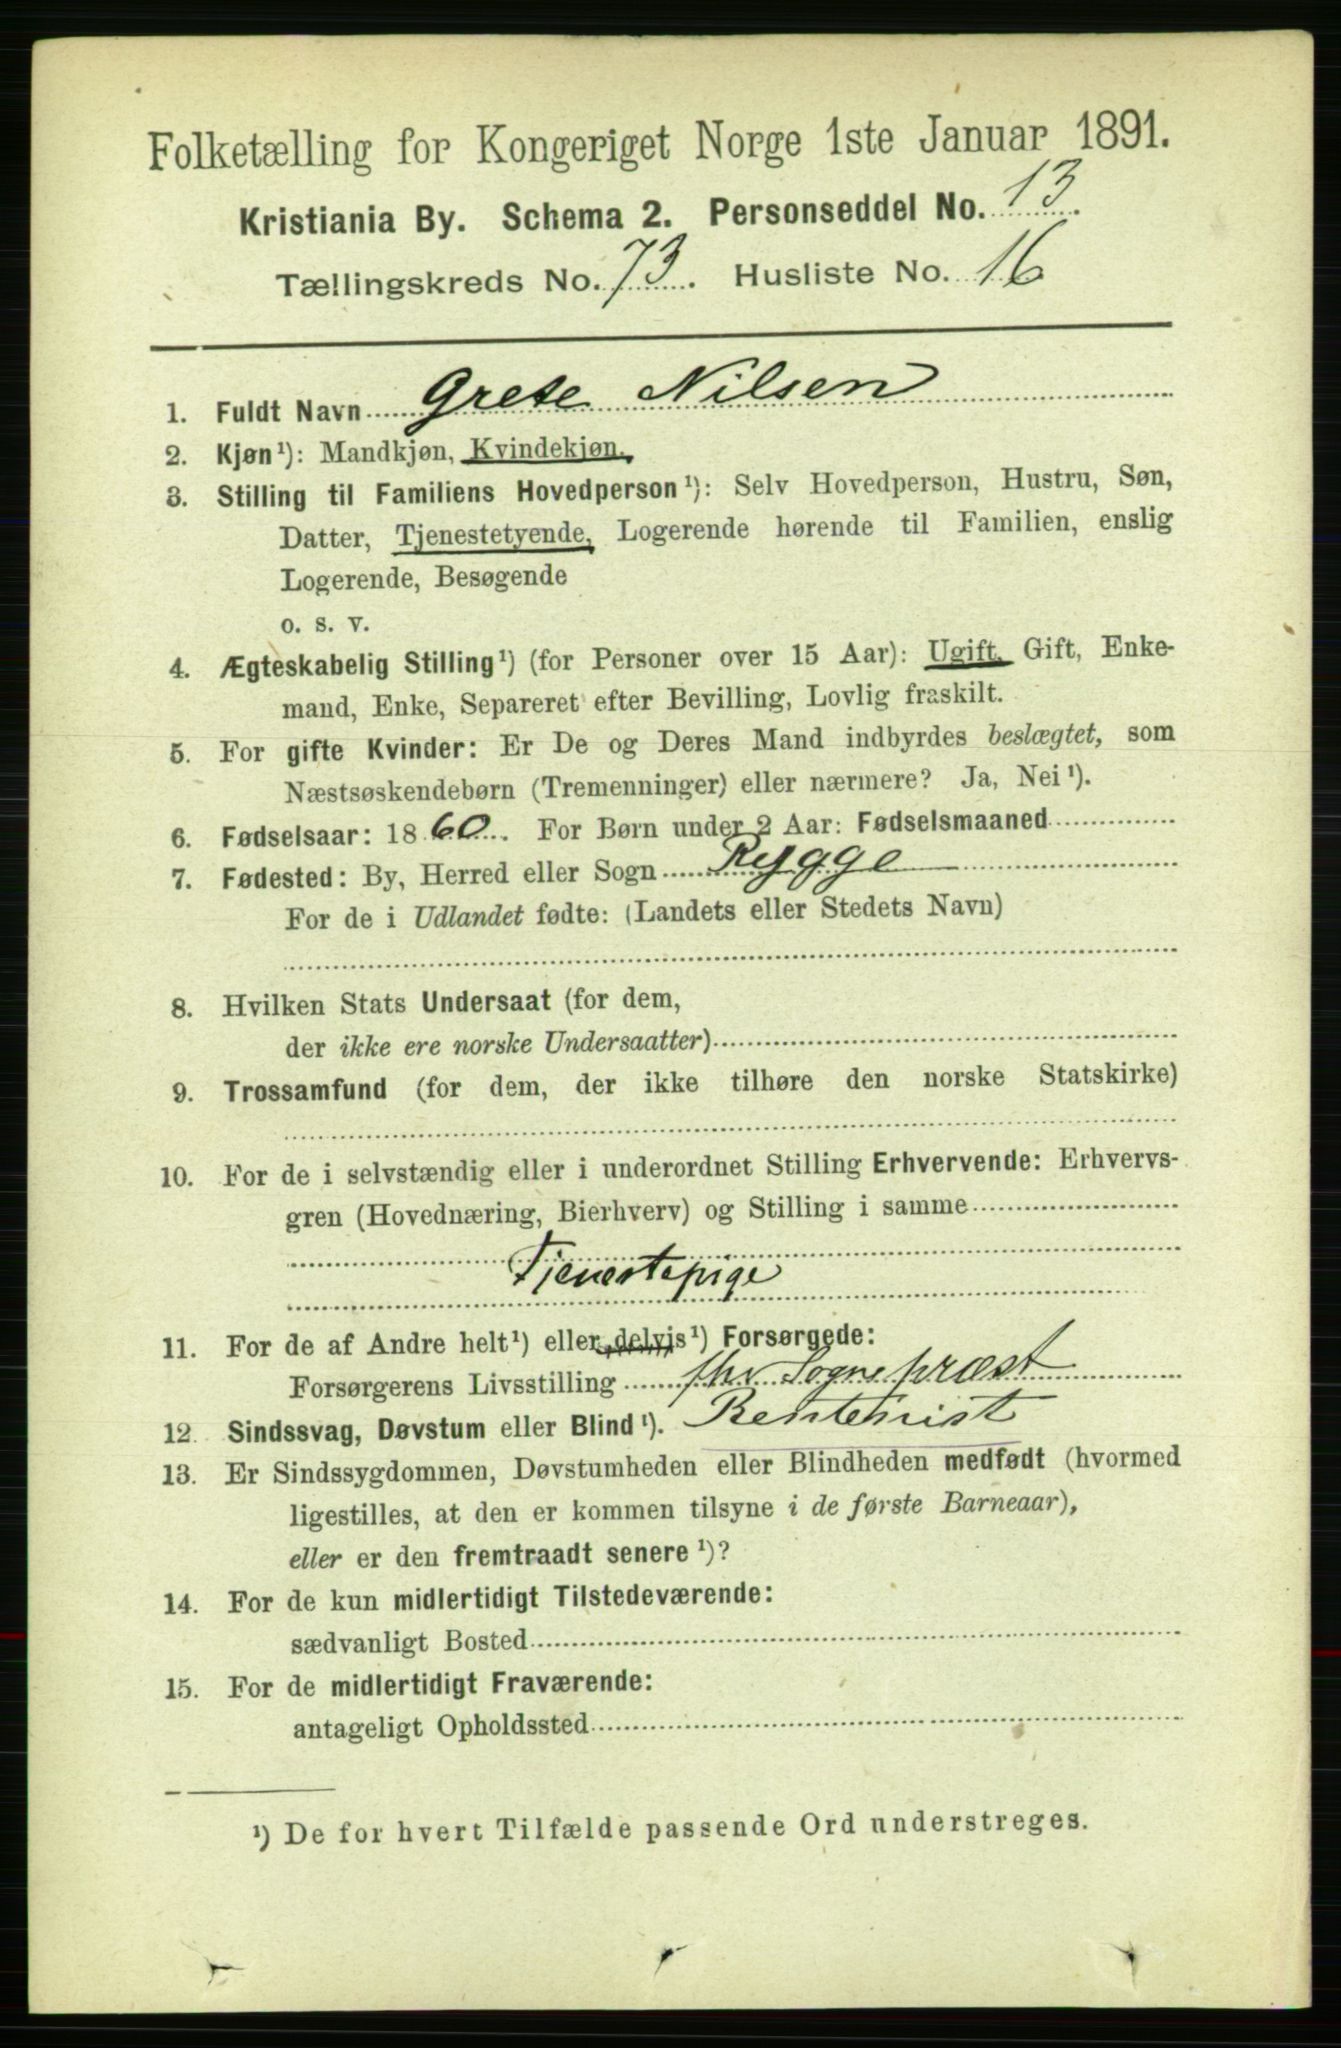 Folketælling for Kongeriget Norge 1ste Januar 1891.
Kristiania By. Schema 2. Personseddel No. 13.
Tællingskreds No. 73. Husliste No. 16
1. Fuldt Navn Grete Nilsen
2. Kjøn¹): Mandkjøn, Kvindekjøn.
3. Stilling til Familiens Hovedperson¹): Selv Hovedperson, Hustru, Søn,
Datter, Tjenestetyende, Logerende hørende til Familien, enslig
Logerende, Besøgende
o. s. v.
4. Ægteskabelig Stilling¹) (for Personer over 15 Aar): Ugift, Gift, Enke-
mand, Enke, Separeret efter Bevilling, Lovlig fraskilt.
5. For gifte Kvinder: Er De og Deres Mand indbyrdes beslægtet, som
Næstsøskendebørn (Tremenninger) eller nærmere? Ja, Nei¹).
6. Fødselsaar: 1860. For Børn under 2 Aar: Fødselsmaaned
7. Fødested: By, Herred eller Sogn Rygge
For de i Udlandet fødte: (Landets eller Stedets Navn)
8. Hvilken Stats Undersaat (for dem,
der ikke ere norske Undersaatter)
9. Trossamfund (for dem, der ikke tilhøre den norske Statskirke)
10. For de i selvstændig eller i underordnet Stilling Erhvervende: Erhvervs-
gren (Hovednæring, Bierhverv) og Stilling i samme
Tjenestepige
11. For de af Andre helt¹) eller delvis¹) Forsørgede:
Forsørgerens Livsstilling fhv Sognepræst
12. Sindssvag, Døvstum eller Blind¹). Rentenist
13. Er Sindssygdommen, Døvstumheden eller Blindheden medfødt (hvormed
ligestilles, at den er kommen tilsyne i de første Barneaar),
eller er den fremtraadt senere¹)?
14. For de kun midlertidigt Tilstedeværende:
sædvanligt Bosted
15. For de midlertidigt Fraværende:
antageligt Opholdssted
¹) De for hvert Tilfælde passende Ord understreges.